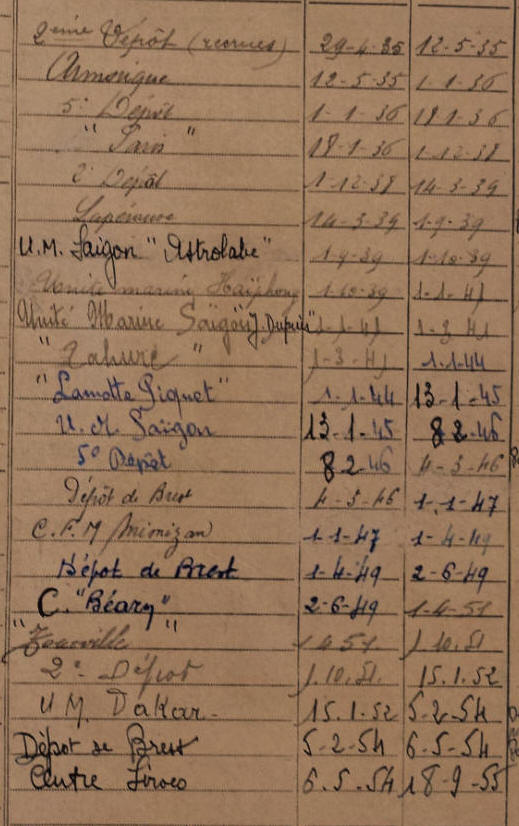 2ème Dépôt (recrues) 29-4-35 12-5-35
Armorique 12-5-35 1-1-36
5e Dépôt 1-1-36 18-1-36
" Paris " 18-1-36 1-12-38
2e Dépôt 1-12-38 14-3-39
Lapérouse 14-3-39 1-9-39
U.M. Saïgon "Astrolabe" 1-9-39 1-10-39
Unité marine Haïphong 1-10-39 1-1-41
Unité Marine Saïgon "J. Dupuis" 1-1-41 1-3-41
"Tahure" 1-3-41 1.1.44
"Lamotte Piquet" 1-1-44 13-1-45
U.M. Saïgon 13-1-45 8 2-46
5e Dépôt 8 2-46 4-3-46
Dépôt de Brest 4-3-46 1-1-47
C.F.M Mimizan 1-1-47 1-4-49
Dépôt de Brest 1-4-49 2-6-49
C. "Béarn" 2-6-49 1-4-51
" " 1.4.51. 1.10.51
2e Dépot 1.10.51. 15.1.52
U M. Dakar 15.1-52 5-2-54
Dépot de Brest 5-2-54 6-5-54
Centre Siroco 6.5.54 18-9-55